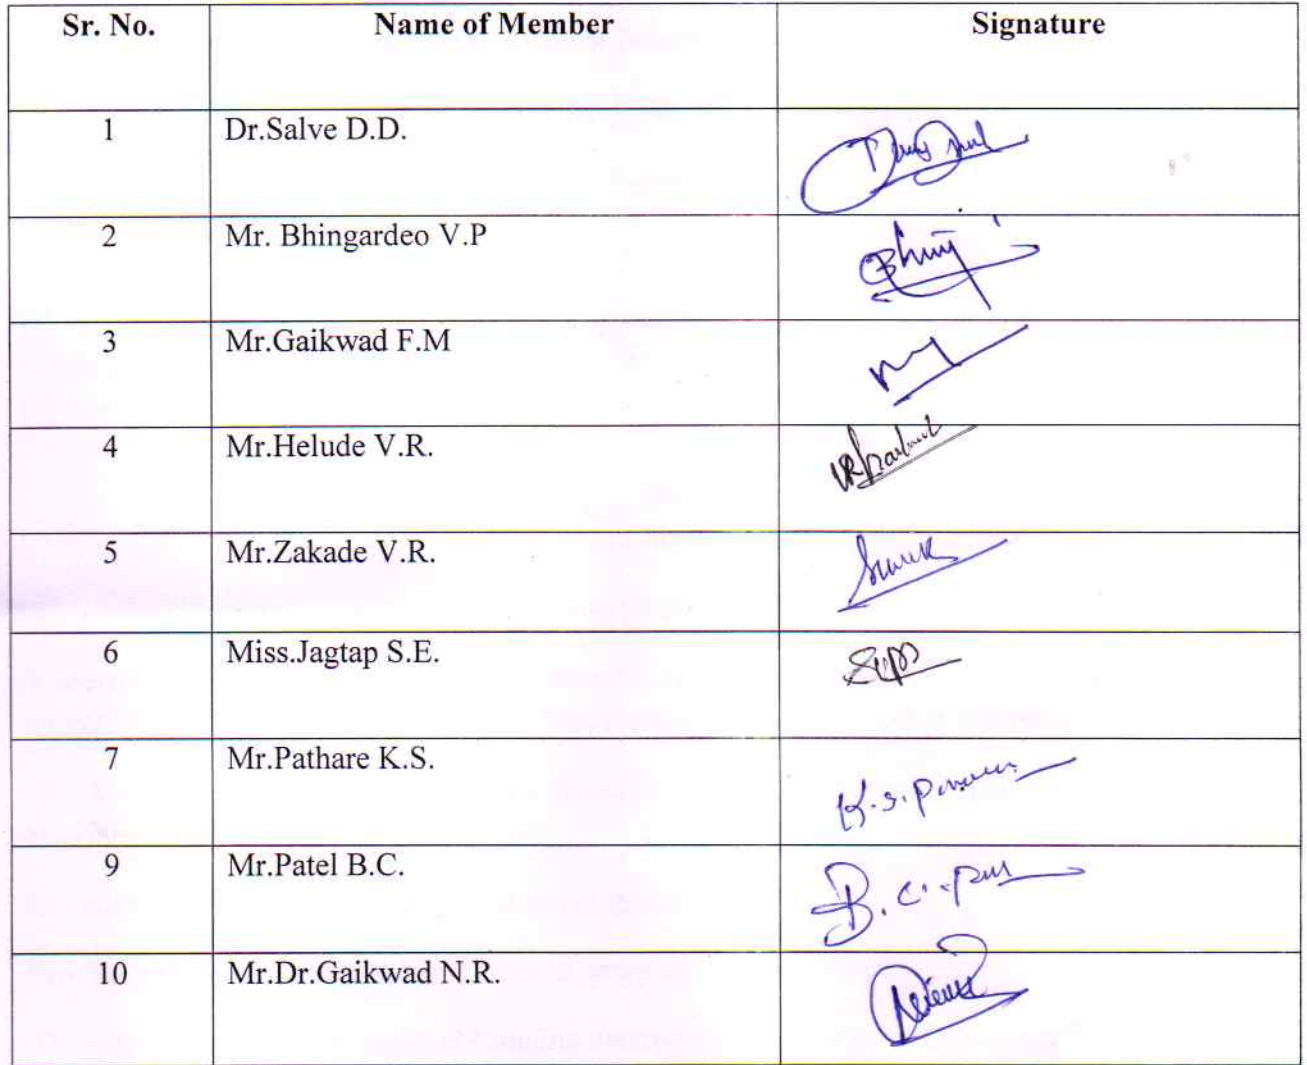 Sr. No. Name of Member Signature
1 Dr.Salve D.D.
2 Mr. Bhingardeo V.P
3 Mr.Gaikwad F.M
4 Mr.Helude V.R.
5 Mr.Zakade V.R.
6 Miss.Jagtap S.E.
7 Mr.Pathare K.S. K.S.
9 Mr.Patel B.C. B.C.
10 Mr.Dr.Gaikwad N.R.